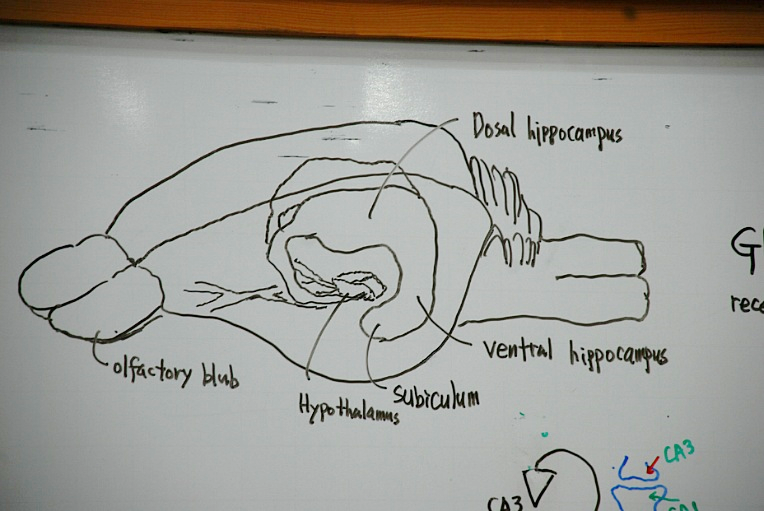 Dosal hippocampus
ventral hippocampus
olfactory blub
subiculum
Hypothalamus
CA3
CA3